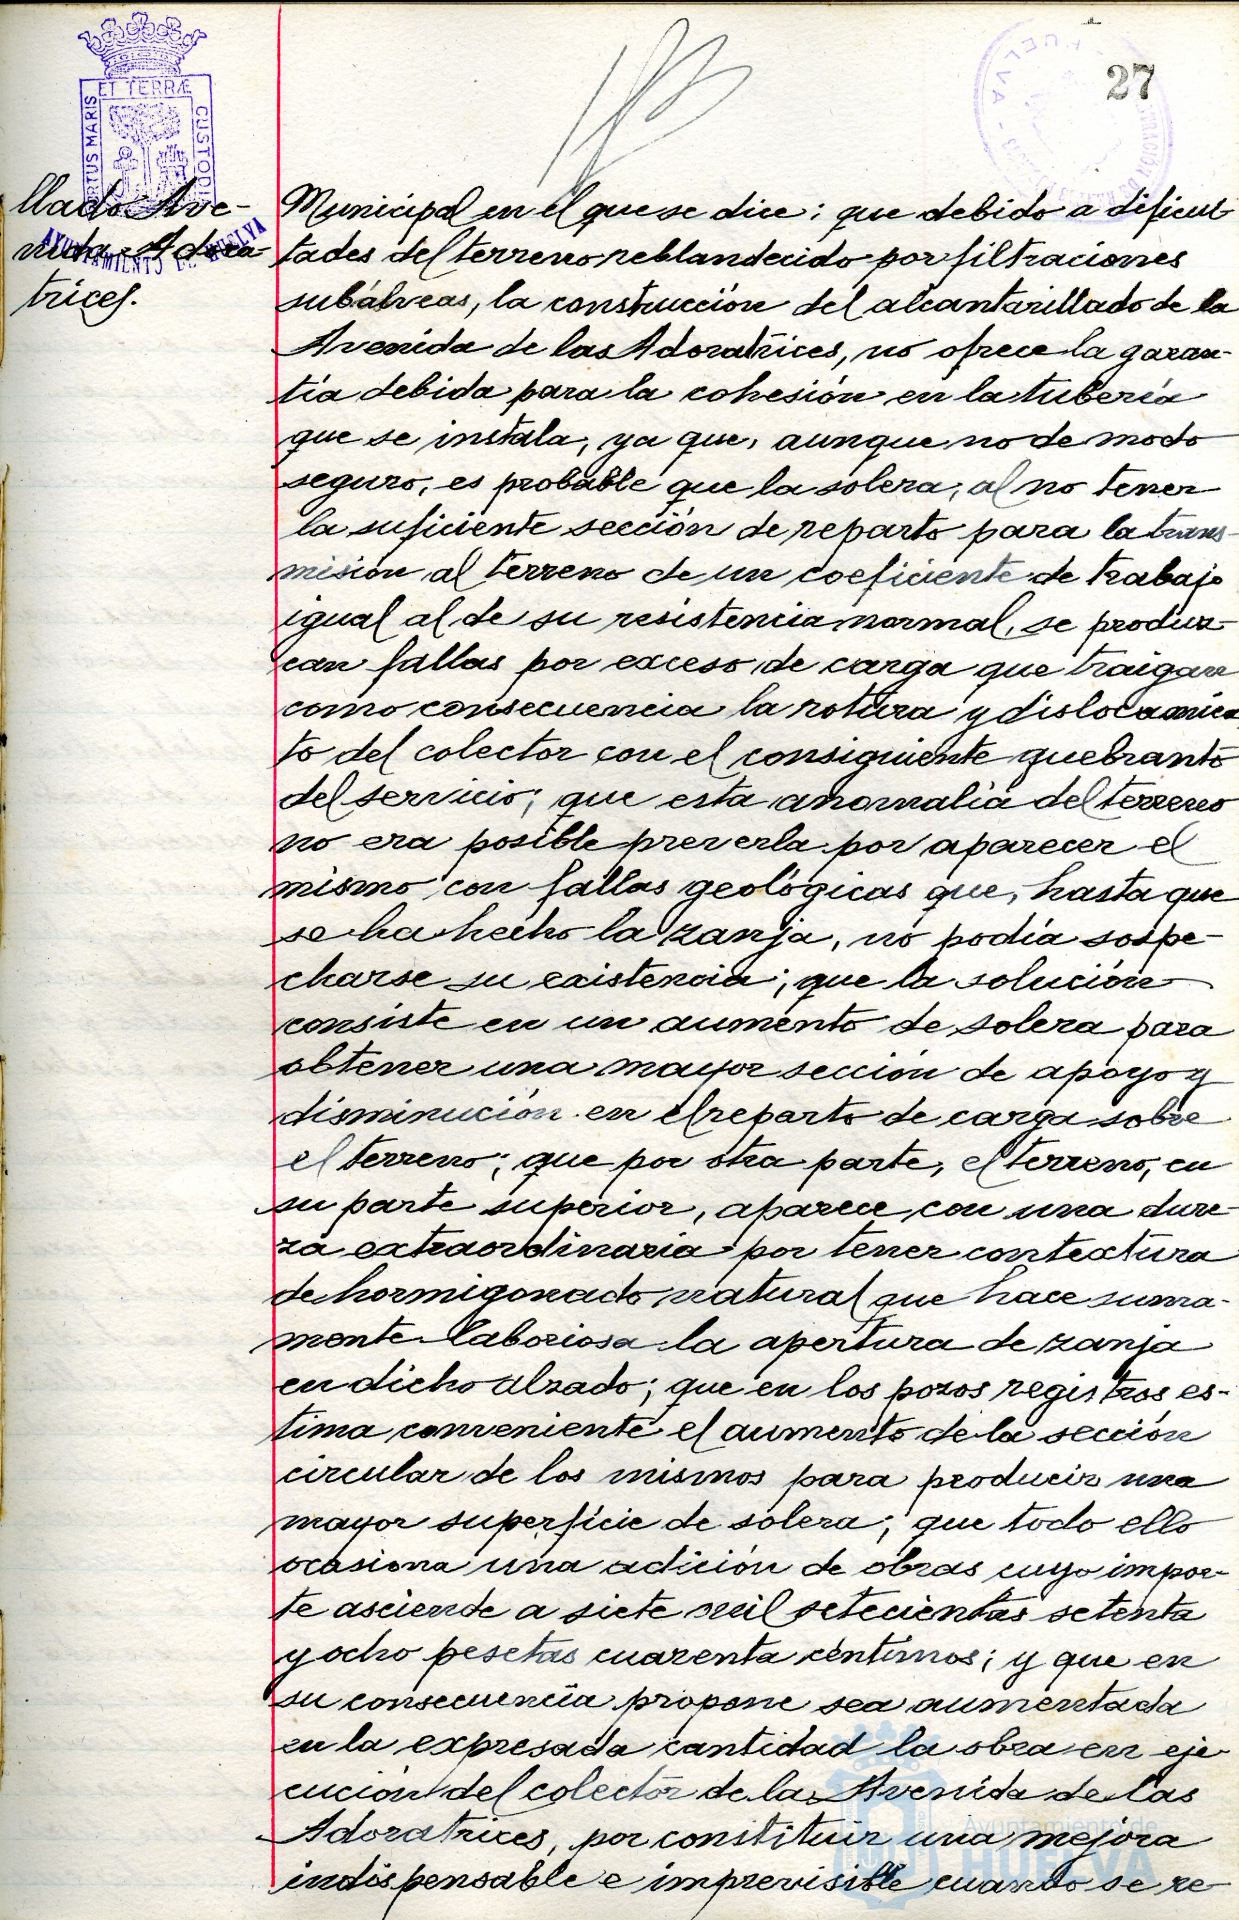 27
ET TERRÆ
PORTUS MARIS
CUSTODI
AYUNTAMIENTO DE HUELVA
HUELVA
llado Ave-
nida Adora-
trices.
Municipal en el que se dice: que debido a dificul
tades del terreno reblandecido por filtraciones
subálveas, la construcción del alcantarillado de la
Avenida de las Adoratrices, no ofrece la garan-
tía debida para la cohesión en la tubería
que se instala, ya que, aunque no de modo
seguro, es probable que la solera, al no tener
la suficiente sección de reparto para la trans-
misión al terreno de un coeficiente de trabajo
igual al de su resistencia normal, se produz-
can fallas por exceso de carga que traigan
como consecuencia la rotura y dislocamien
to del colector con el consiguiente quebranto
del servicio; que esta anomalía del terreno
no era posible preverla por aparecer el
mismo con fallas geológicas que, hasta que
se ha hecho la zanja, no podía sospe-
charse su existencia; que la solución
consiste en un aumento de solera para
obtener una mayor sección de apoyo y
disminución en el reparto de carga sobre
el terreno; que por otra parte, el terreno, en
su parte superior, aparece con una dure-
za extraordinaria por tener contextura
de hormigonado natural que hace suma-
mente laboriosa la apertura de zanja
en dicho alzado; que en los pozos registros es-
tima conveniente el aumento de la sección
circular de los mismos para producir una
mayor superficie de solera; que todo ello
ocasiona una adición de obras cuyo impor-
te asciende a siete mil setecientas setenta
y ocho pesetas cuarenta céntimos; y que en
su consecuencia propone sea aumentada
en la expresada cantidad la obra en eje-
cución del colector de la Avenida de las
Adoratrices, por constituir una mejora
indispensable e imprevisible cuando se re-
Ayuntamiento de
HUELVA